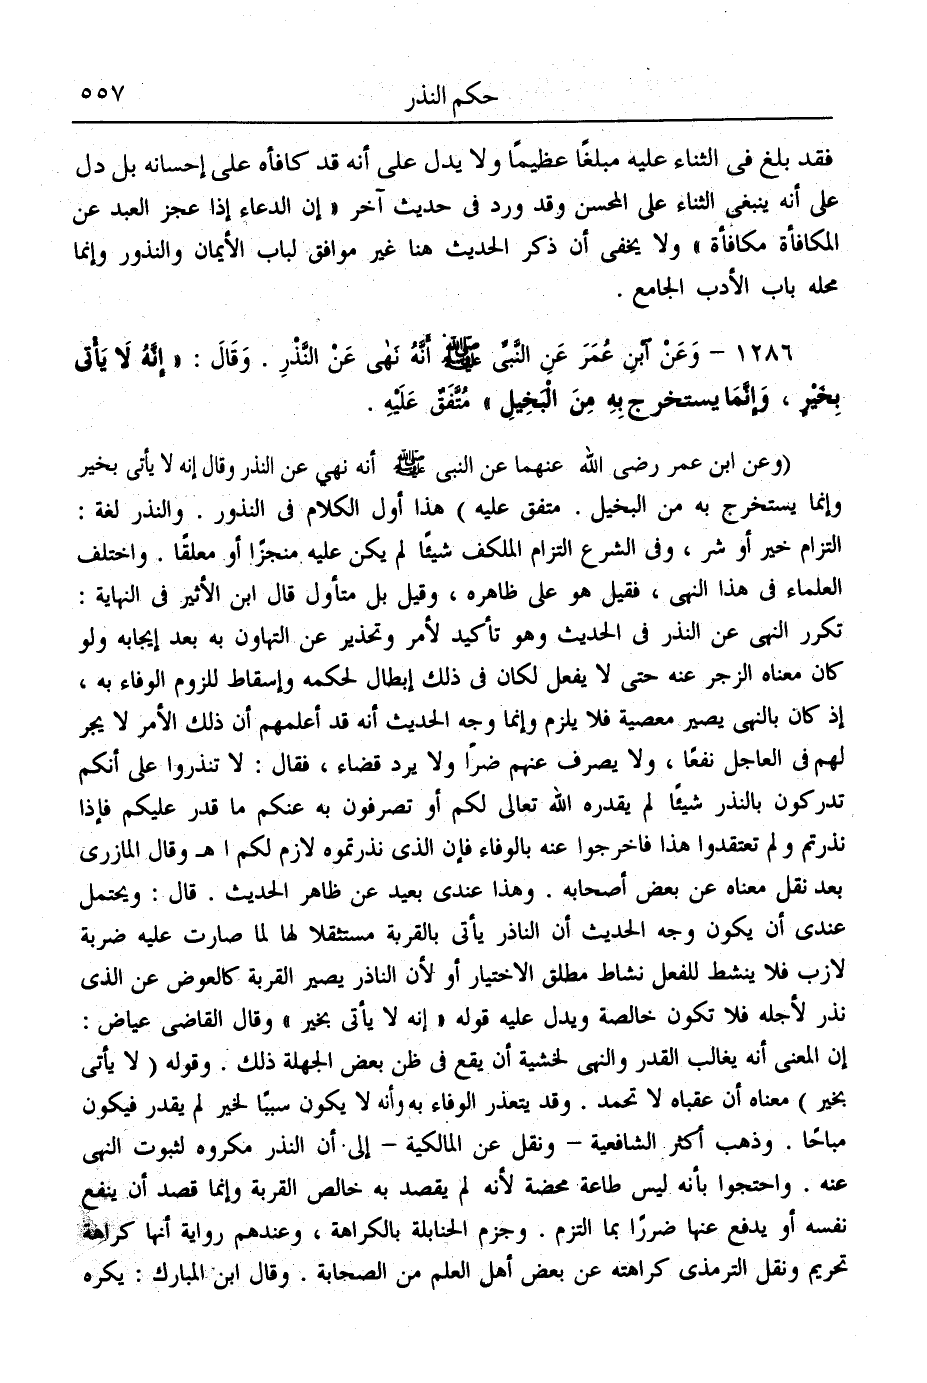 حكم النذر ٥٥٧
فقد بلغ فى الثناء عليه مبلغًا عظيمًا ولا يدل على أنه قد كافأه على إحسانه بل دل
على أنه ينبغى الثناء على المحسن وقد ورد فى حديث آخر « إن الدعاء إذا عجز العبد عن
المكافأة مكافأة » ولا يخفى أن ذكر الحديث هنا غير موافق لباب الأيمان والنذور وإنما
محله باب الأدب الجامع .
١٢٨٦ – وَعَنْ آبنِ عُمَرَ عَنِ النَّبىِّ ﷺ أَنَّهُ نَهٰى عَنْ النَّذْرِ . وَقَالَ : « إِنَّهُ لَا يَأْتى
بِخَيْرٍ ، وَإِنَّمَا يستخرج بِهِ مِنَ الْبَخِيلِ » مُتَّفَقٌ عَلَيْهِ .
(وعن ابن عمر رضى الله عنهما عن النبى ﷺ أنه نهي عن النذر وقال إنه لا يأتى بخير
وإنما يستخرج به من البخيل . متفق عليه ) هذا أول الكلام فى النذور . والنذر لغة :
التزام خير أو شر ، وفى الشرع التزام الملكف شيئًا لم يكن عليه منجزًا أو معلقًا . واختلف
العلماء فى هذا النهى ، فقيل هو على ظاهره ، وقيل بل متأول قال ابن الأثير فى النهاية :
تكرر النهى عن النذر فى الحديث وهو تأكيد لأمر وتحذير عن التهاون به بعد إيجابه ولو
كان معناه الزجر عنه حتى لا يفعل لكان فى ذلك إبطال لحكمه وإسقاط للزوم الوفاء به ،
إذ كان بالنهى يصير معصية فلا يلزم وإنما وجه الحديث أنه قد أعلمهم أن ذلك الأمر لا يجر
لهم فى العاجل نفعًا ، ولا يصرف عنهم ضرًا ولا يرد قضاء ، فقال : لا تنذروا على أنكم
تدركون بالنذر شيئًا لم يقدره الله تعالى لكم أو تصرفون به عنكم ما قدر عليكم فإذا
نذرتم ولم تعتقدوا هذا فاخرجوا عنه بالوفاء فإن الذى نذرتموه لازم لكم ا هـ وقال المازرى
بعد نقل معناه عن بعض أصحابه . وهذا عندى بعيد عن ظاهر الحديث . قال : ويحتمل
عندى أن يكون وجه الحديث أن الناذر يأتى بالقربة مستثقلا لها لما صارت عليه ضربة
لازب فلا ينشط للفعل نشاط مطلق الاختيار أو لأن الناذر يصير القربة كالعوض عن الذى
نذر لأجله فلا تكون خالصة ويدل عليه قوله « إنه لا يأتى بخير » وقال القاضى عياض :
إن المعنى أنه يغالب القدر والنهى لخشية أن يقع فى ظن بعض الجهلة ذلك . وقوله ( لا يأتى
بخير ) معناه أن عقباه لا تحمد . وقد يتعذر الوفاء به وأنه لا يكون سببًا لخير لم يقدر فيكون
مباحًا . وذهب أكثر الشافعية – ونقل عن المالكية – إلى أن النذر مكروه لثبوت النهى
عنه . واحتجوا بأنه ليس طاعة محضة لأنه لم يقصد به خالص القربة وإنما قصد أن ينفع
نفسه أو يدفع عنها ضررًا بما التزم . وجزم الحنابلة بالكراهة ، وعندهم رواية أنها كراهة
تحريم ونقل الترمذى كراهته عن بعض أهل العلم من الصحابة . وقال ابن المبارك : يكره